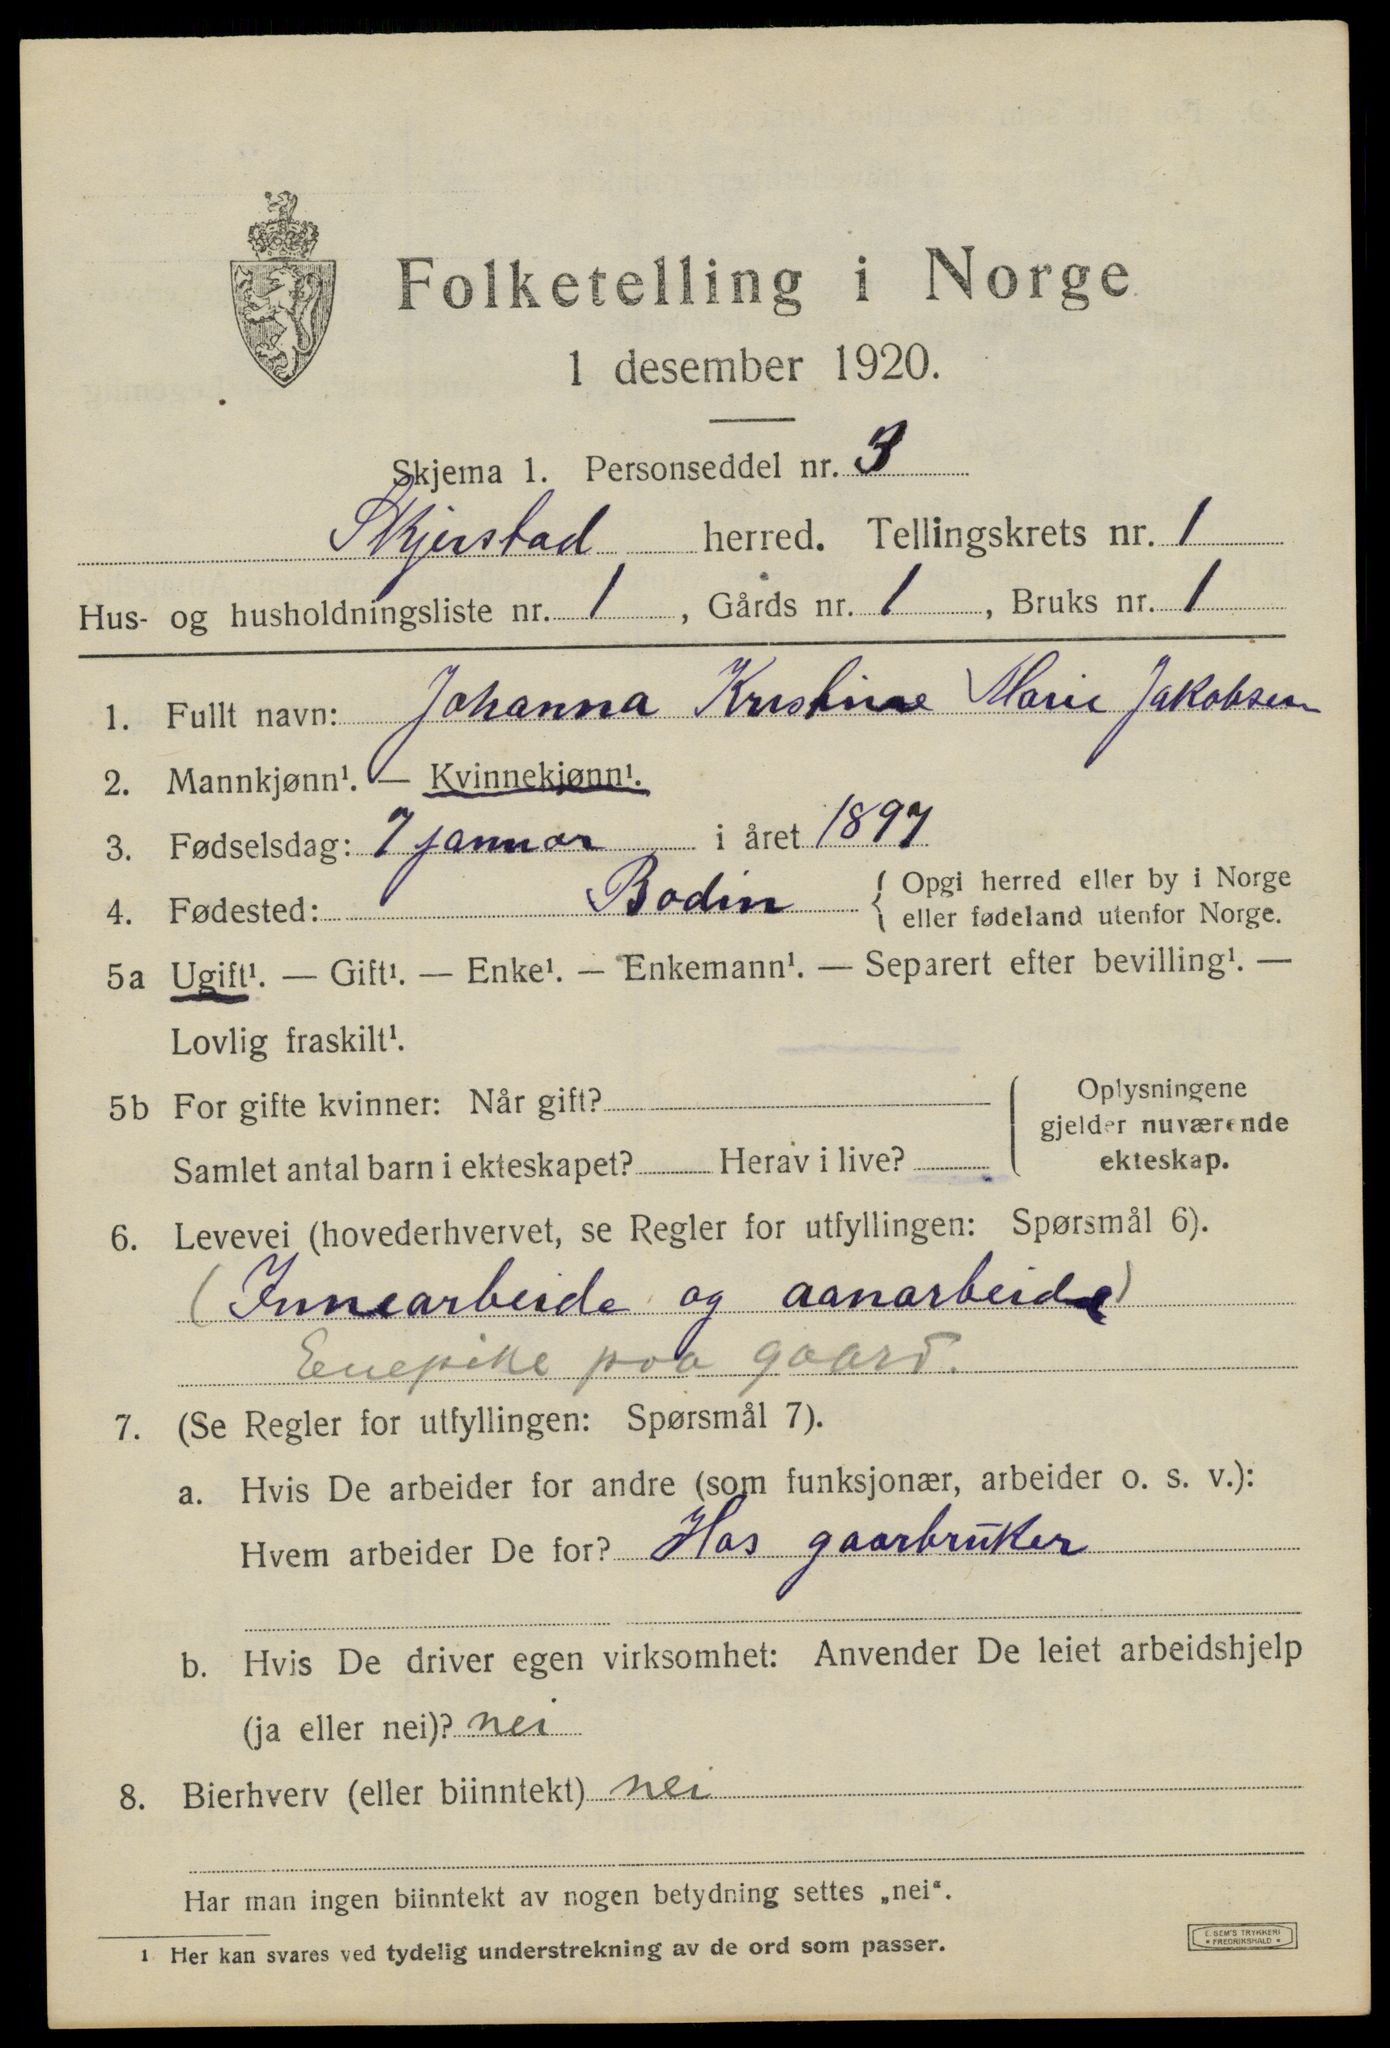 Folketelling i Norge
1 desember 1920.
Skjema 1. Personseddel nr. 3
Skjerstad herred. Tellingskrets nr. 1
Hus- og husholdningsliste nr. 1, Gårds nr. 1, Bruks nr. 1
1. Fullt navn: Johanna Kristine Marie Jakobsen
2. Mannkjønn¹. — Kvinnekjønn¹.
3. Fødselsdag: 7 januar i året 1897
4. Fødested: Bodin { Opgi herred eller by i Norge
eller fødeland utenfor Norge.
5a Ugift¹. — Gift¹. — Enke¹. — Enkemann¹. — Separert efter bevilling¹. —
Lovlig fraskilt¹.
5b For gifte kvinner: Når gift?
Samlet antal barn i ekteskapet? Herav i live?
Oplysningene
gjelder nuværende
ekteskap.
6. Levevei (hovederhvervet, se Regler for utfyllingen: Spørsmål 6).
(Innearbeide og aanarbeide)
Enepike paa gaard.
7. (Se Regler for utfyllingen: Spørsmål 7).
a. Hvis De arbeider for andre (som funksjonær, arbeider o. s. v.):
Hvem arbeider De for? Hos gaarbruker
b. Hvis De driver egen virksomhet: Anvender De leiet arbeidshjelp
(ja eller nei)? nei
8. Bierhverv (eller biinntekt) nei
Har man ingen biinntekt av nogen betydning settes „nei“.
1 Her kan svares ved tydelig understrekning av de ord som passer.
E. SEM'S TRYKKERI
* FREDRIKSHALD *